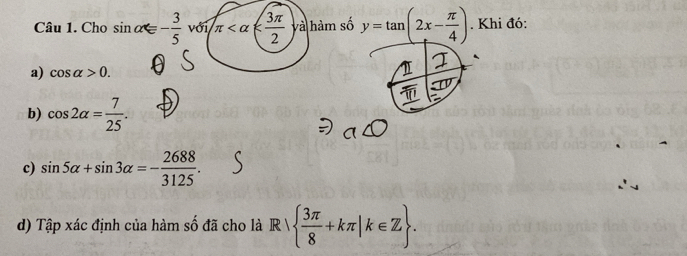 Câu 1. Cho sin α = -3/5 với π < α < 3π/2 và hàm số y = tan(2x - π/4). Khi đó:
II I
III IV
a) cos α > 0. S
b) cos 2α = 7/25. Đ
⇒ a<0
c) sin 5α + sin 3α = -2688/3125. S
d) Tập xác định của hàm số đã cho là ℝ \ {3π/8 + kπ | k ∈ ℤ}.